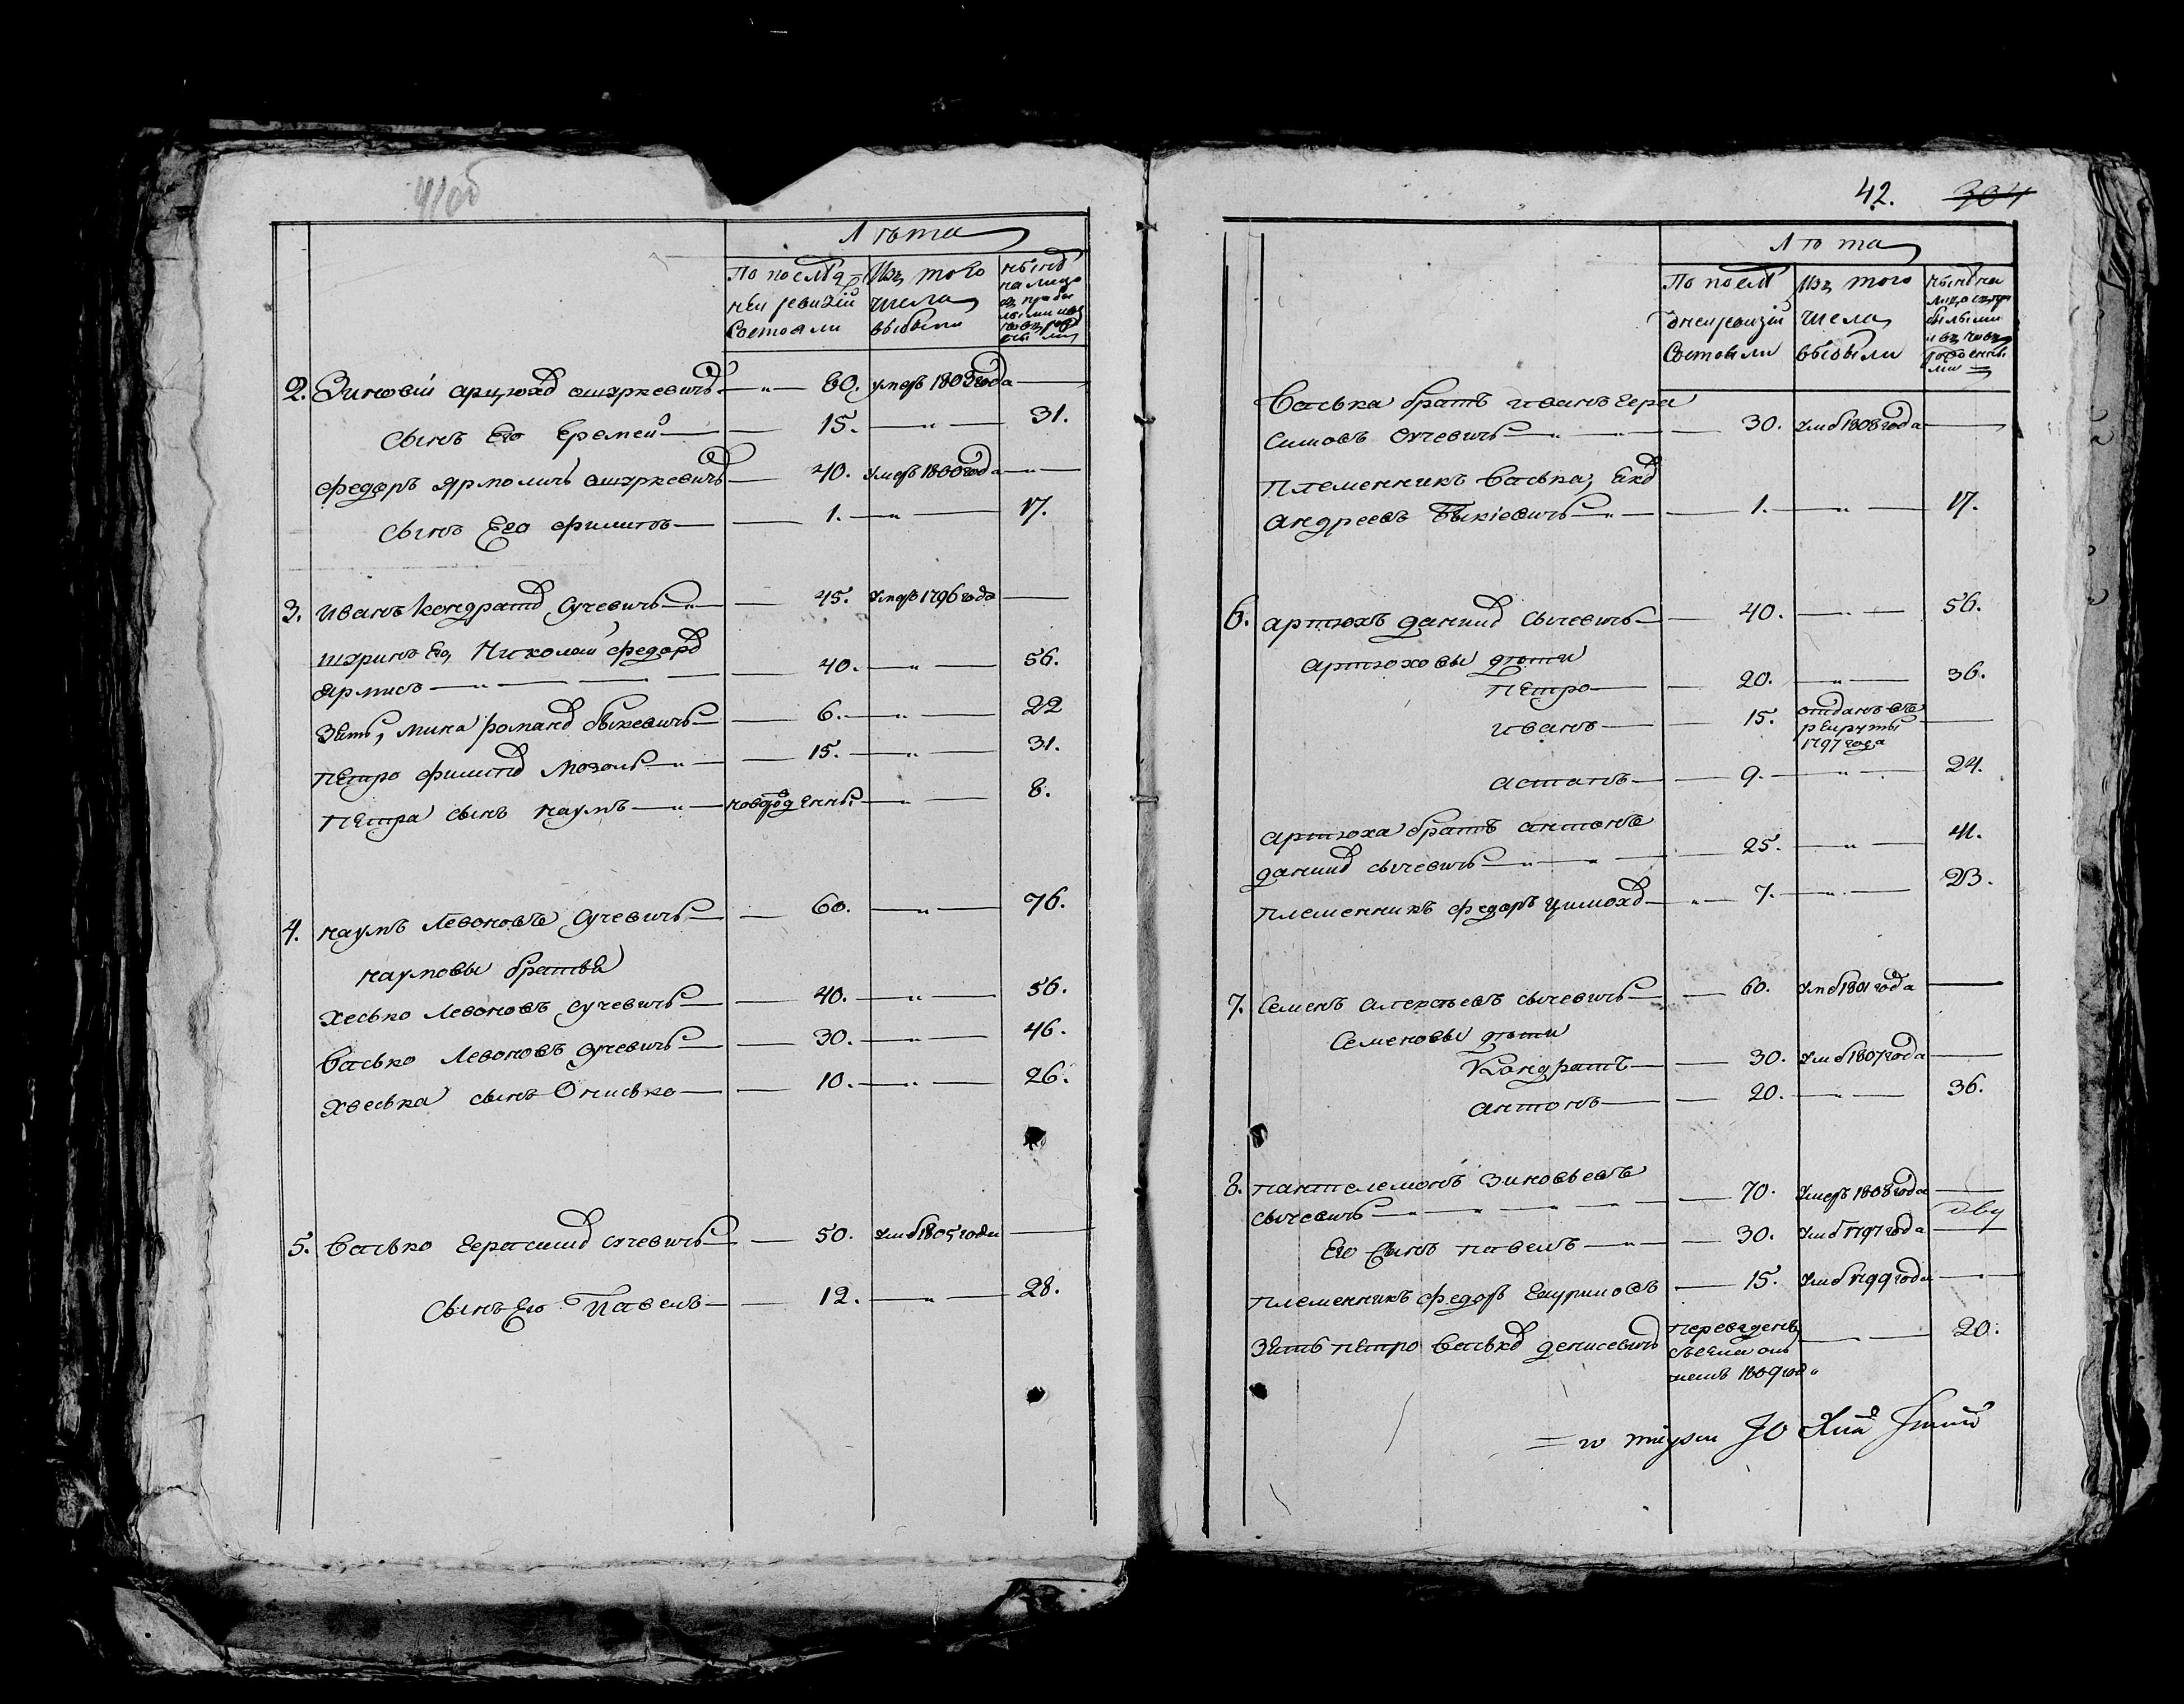 41об
Лѣта
По послѣд- Изъ того нынѣ
ней ревизіи числа на лицо
состояли выбыли съ прибы
лыми и
2. Зиновій Арцюхов Ошуркевичъ 60. умеръ 1803 года
сынъ Его Еремей 15. 31.
Федоръ Ярмоличъ Ошуркевичъ 40. умеръ 1800 года
сынъ Его Филипъ 1. 17.
3. Иванъ Кондратов Сучевичъ 45. умеръ 1796 года
шуринъ Его, Николай Федоров
Ярмисъ 40. 56.
Зять, Мина Романов Быкевичъ 6. 22
Петро Филипов Мозоль 15. 31.
Петра сынъ Наумъ новорожденный 8.
4. Наумъ Левоновъ Сучевичъ 60. 76.
Наумовы братья
Хесько Левоновъ Сучевичъ 40. 56.
Васько Левоновъ Сучевичъ 30. 46.
Хвеська сынъ Онисько 10. 26.
5. Васько Герасимов Сучевичъ 50. умеръ 1805 года
Сынъ Его Павелъ 12. 28.
42. 304
Лѣта
По послѣ Изъ того нынѣ на
дней ревизіи числа лицо съ при
состояли выбыли былыми
и въ новь
рожденны
ми
Васька братъ Иванъ Гера
симовъ Сучевичъ 30. умеръ 1808 года
Племенникъ Васька,
Андреевъ Быкіевичъ 1. 17.
6. Артюхъ Данилов Сычевичъ 40. 56.
Артюховы дѣти
Петро 20. 36.
Иванъ 15. отданъ въ
рекруты
1797 года
Астапъ 9. 24.
Артюха братъ Антонъ
Данилов Сычевичъ 25. 41.
Племенникъ Федоръ Цимохов 7. 23.
7. Семенъ Сычевичъ 60. умеръ 1801 года
Семеновы дѣти
Кондратъ 30. умеръ 1807 года
Антонъ 20. 36.
8. Пантелемонъ Зиновьевъ
Сычевичъ 70. умеръ 1808 года
Его сынъ Павелъ 30. умеръ 1797 года
Племенникъ Федоръ 15. умеръ 1799 года
Зять Петро Васьков Денисевичъ переведенъ 20.
1809 года